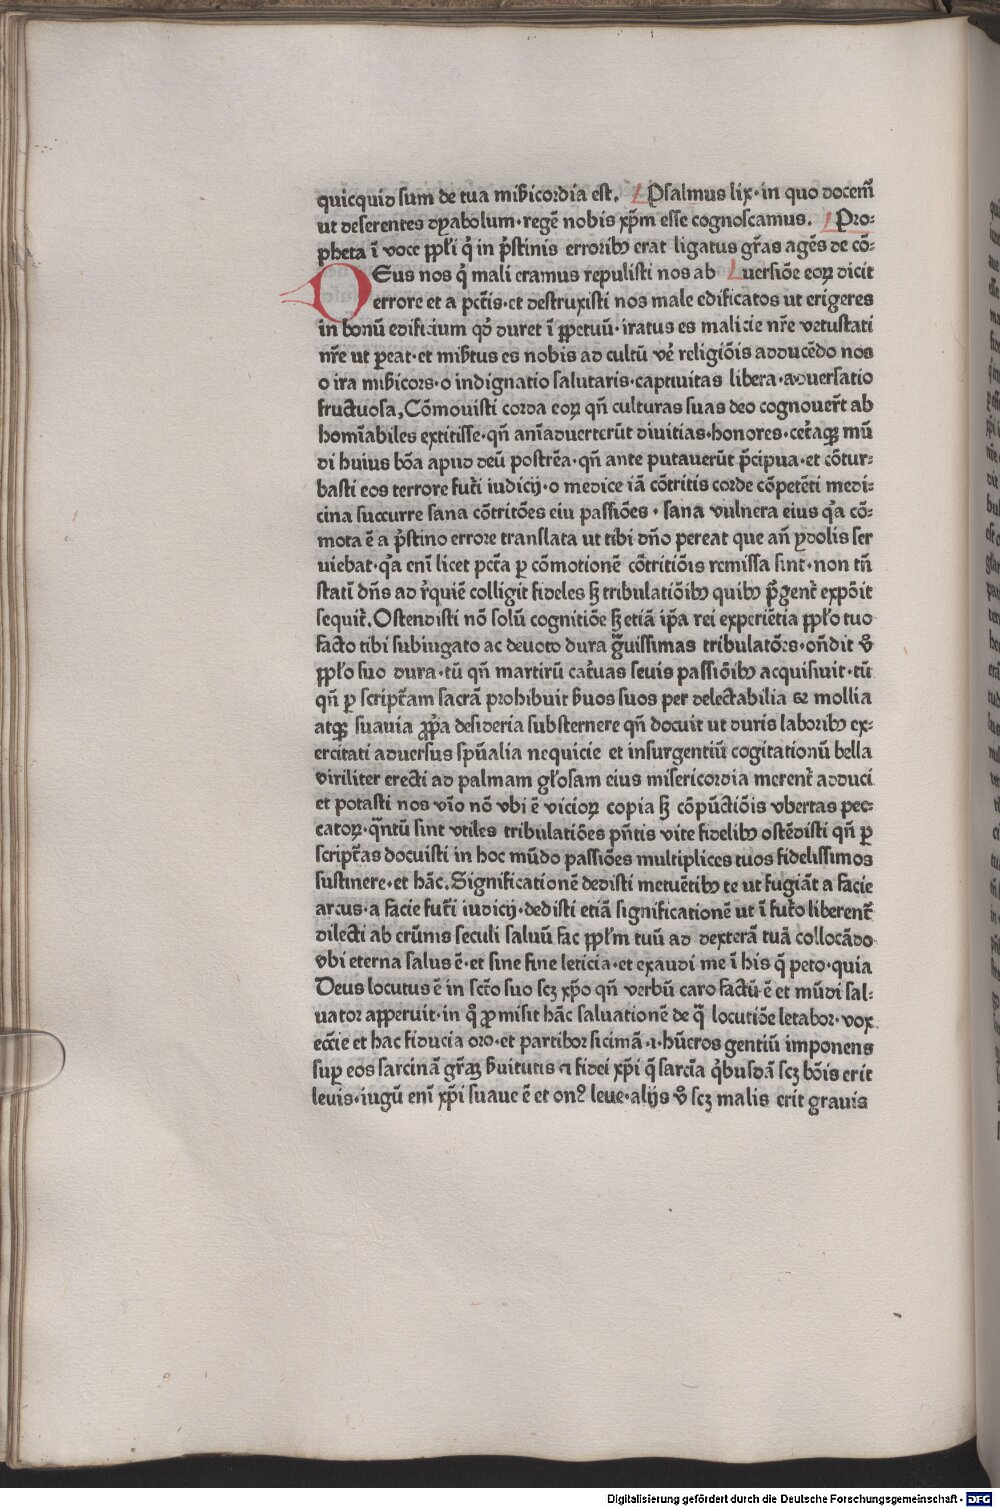 quicquid sum de tua mib̄icordia est. Psalmus lix· in quo docem̄
ut deserentes dyabolum· regē nobis xp̄m esse cognoscamus. Pro-
pheta ī voce pp̄li q̇ in p̄stinis erroribꝫ erat ligatus gr̄as agēs de cō-
DEus nos q̇ mali eramus repulisti nos ab uersiōe eoꝝ dicit
errore et a pctīs· et destruxisti nos male edificatos ut erigeres
in bonū edificium qd̓ duret ī ꝑpetuū· iratus es malicie nr̄e vetustati
nr̄e ut ꝑeat· et mib̄tus es nobis ad cultū ve̓ religiōis adducēdo nos
o ira mib̄icors· o indignatio salutaris· captiuitas libera· aduersatio
fructuosa, Cōmouisti corda eoꝝ qn̄ culturas suas deo cognouer̄t ab
homīabiles extitisse· qn̄ anīaduerterūt diuitias· honores· cet̓aqꝫ mū
di huius bōa apud deū postrēa· qn̄ ante putauerūt p̄cipua· et cōtur-
basti eos terrore fut̓i iudicij· o medice iā cōtritis corde cōpetēti medi-
cina succurre sana cōtritōes eiu passiōes· sana vulnera eius q̇a cō-
mota ē a p̓stino errore translata ut tibi dn̄o pereat que an̄ ydolis ser
uiebat· q̇a enī licet pctā ꝑ cōmotionē cōtritiōis remissa sint· non tn̄
statī dn̄s ad r̓quiē colligit fideles sꝫ tribulatiōibꝫ quibꝫ p̄gent̓ expōit
sequit̓. Ostendisti nō solū cognitiōe sꝫ etiā ip̄a rei experiētia pp̄lo tuo
facto tibi subiugato ac deuoto dura g̃uissimas tribulatōes· on̄dit v̓
pp̄lo suo dura· tū qn̄ martirū cat̓uas seuis passiōibꝫ acquisiuit· tū
qn̄ ꝑ script̓am sacrā prohibuit b̄uos suos per delectabilia & mollia
atqꝫ suauia ꝓp̄a desideria substernere qn̄ docuit ut duris laboribꝫ ex-
ercitati aduersus spūalia nequicie et insurgentiū cogitationū bella
viriliter erecti ad palmam gl̄osam eius misericordia merent̓ adduci
et potasti nos vīo nō vbi ē vicioꝝ copia sꝫ cōpūctiōis vbertas pec-
catoꝝ· q̃ntū sint vtiles tribulatiōes pn̄tis vite fidelibꝫ ostēdisti qn̄ ꝑ
script̓as docuisti in hoc mūdo passiōes multiplices tuos fidelissimos
sustinere· et hāc. Significationē dedisti metuētibꝫ te ut fugiāt a facie
arcus· a facie fut̓i iudicij· dedisti etiā significationē ut ī fut̓o liberent̓
dilecti ab erūnis seculi saluū fac pp̄lm tuū ad dexterā tuā collocādo
vbi eterna salus ē· et sine fine leticia· et exaudi me ī his q̄ peto· quia
Deus locutus ē in sctō suo scꝫ xp̄o qn̄ verbū caro factū ē et mūdi sal-
uator apperuit· in q̊ ꝓmisit hāc saluationē de q̃ locutiōe letabor· vox
ecc̄ie et hac fiducia oro· et partibor sicimā ·ı· hūeros gentiū imponens
suꝑ eos sarcinā gr̄aꝝ b̄uitutis & fidei xp̄i q̄ sarcīa q̇busdā scꝫ bōis erit
leuis· iugū enī xp̄i suaue ē et onꝰ leue· alijs v̓ scꝫ malis erit grauis
Digitalisierung gefördert durch die Deutsche Forschungsgemeinschaft - DFG